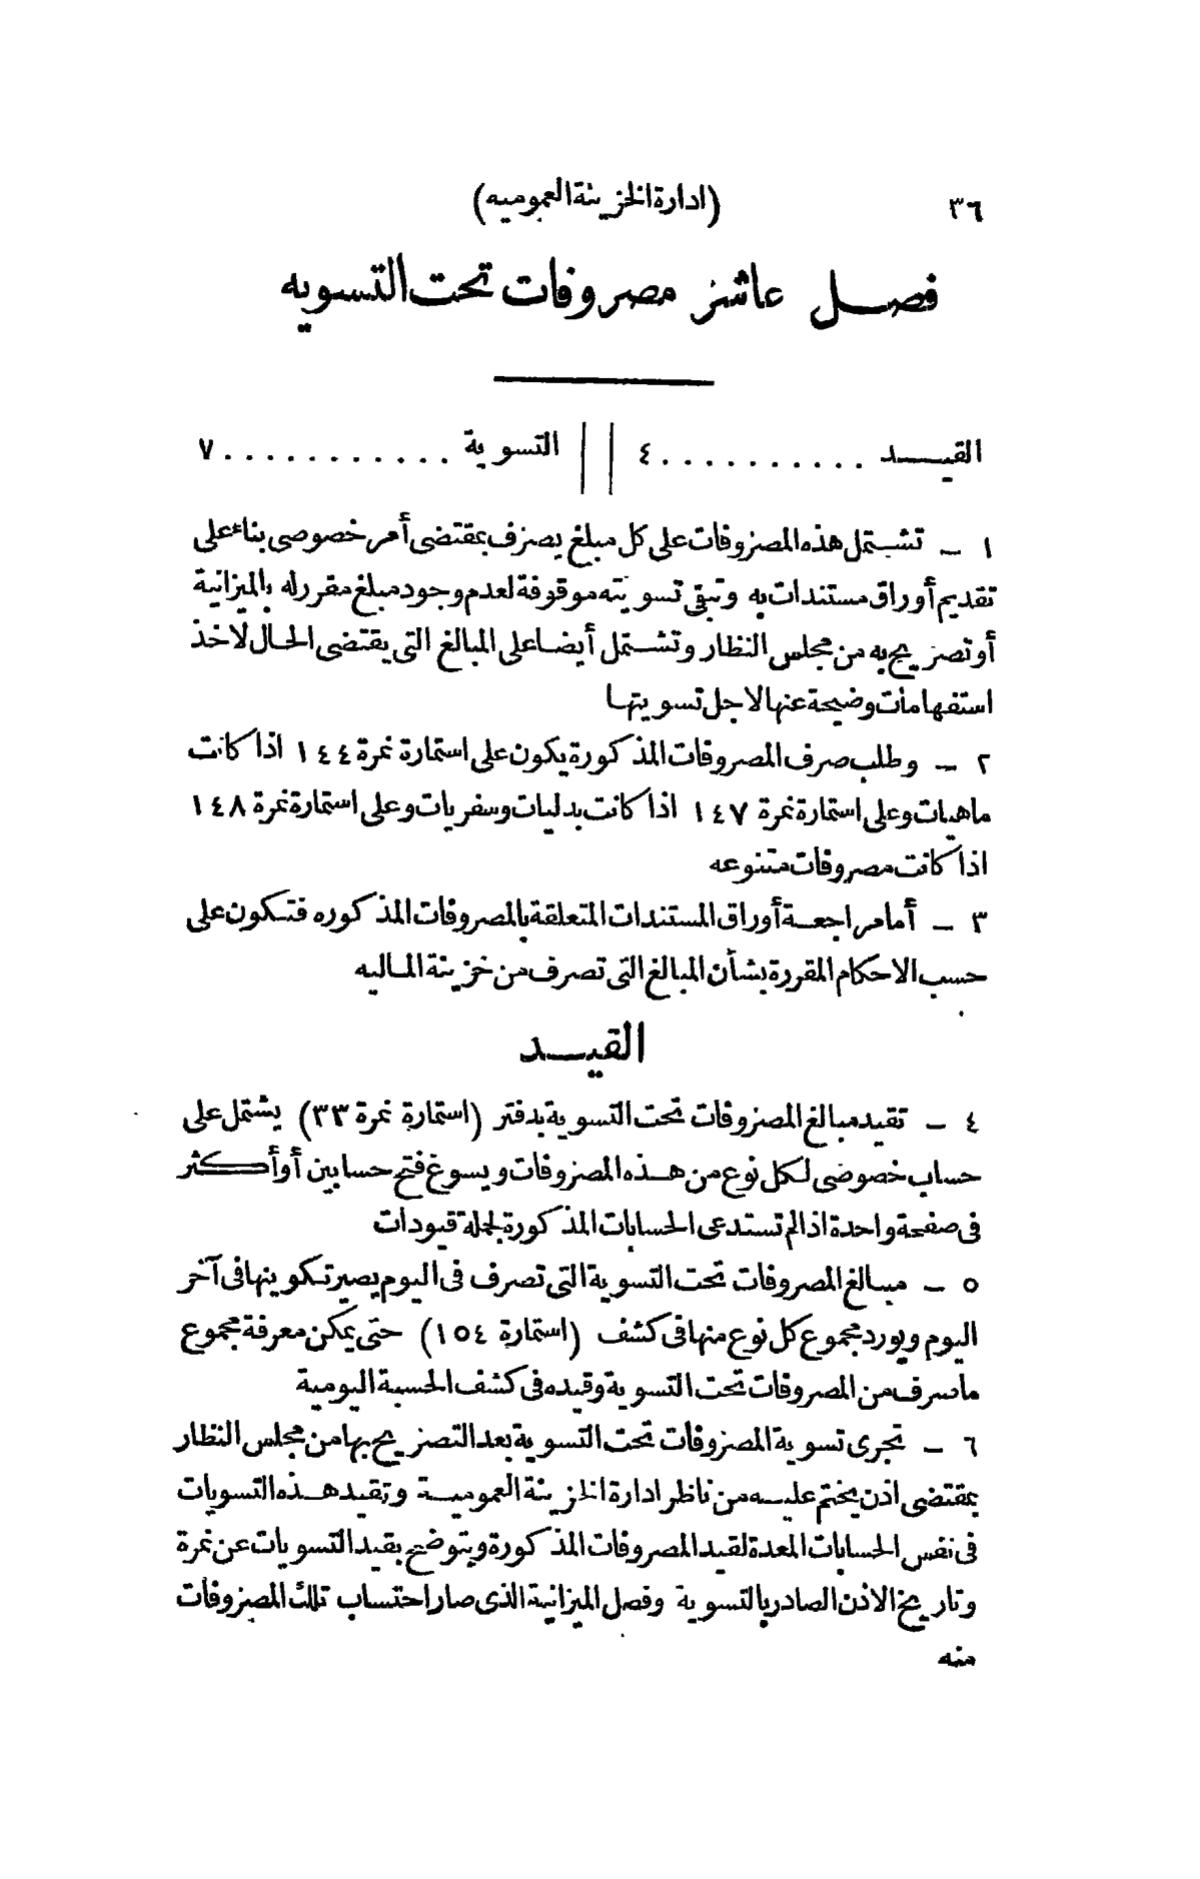 ٣٦
(ادارة الخزينة العموميه)
فصل عاشر مصروفات تحت التسويه
القيد . . . . . . . . . . ٤ || التسوية . . . . . . . . . . . ٧
١ – تشتمل هذه المصروفات على كل مبلغ يصرف بمقتضى أمر خصوصى بناء على
تقديم أوراق مستندات به وتبقى تسويته موقوفة لعدم وجود مبلغ مقرر له بالميزانية
أو تصريح به من مجلس النظار وتشتمل أيضا على المبالغ التى يقتضى الحال لاخذ
استفهامات وضيحة عنها لاجل تسويتها
٢ – وطلب صرف المصروفات المذكورة يكون على استمارة نمرة ١٤٤ اذا كانت
ماهيات وعلى استمارة نمرة ١٤٧ اذا كانت بدليات وسفريات وعلى استمارة نمرة ١٤٨
اذا كانت مصروفات متنوعه
٣ – أما مراجعة أوراق المستندات المتعلقة بالمصروفات المذكوره فتكون على
حسب الاحكام المقررة بشأن المبالغ التى تصرف من خزينة الماليه
القيد
٤ – تقيد مبالغ المصروفات تحت التسوية بدفتر (استمارة نمرة ٣٣) يشتمل على
حساب خصوصى لكل نوع من هذه المصروفات ويسوغ فتح حسابين أو أكثر
فى صفحة واحدة اذا لم تستدعى الحسابات المذكورة لجملة قيودات
٥ – مبالغ المصروفات تحت التسوية التى تصرف فى اليوم يصير تكوينها فى آخر
اليوم ويورد مجموع كل نوع منها فى كشف (استمارة ١٥٤) حتى يمكن معرفة مجموع
ما صرف من المصروفات تحت التسوية وقيده فى كشف الحسبة اليومية
٦ – تجرى تسوية المصروفات تحت التسوية بعد التصريح بها من مجلس النظار
بمقتضى اذن يختم عليه من ناظر ادارة الخزينة العمومية وتقيد هذه التسويات
فى نفس الحسابات المعدة لقيد المصروفات المذكورة ويتوضح بقيد التسويات عن نمرة
وتاريخ الاذن الصادر بالتسوية وفصل الميزانية الذى صار احتساب تلك المصروفات
منه